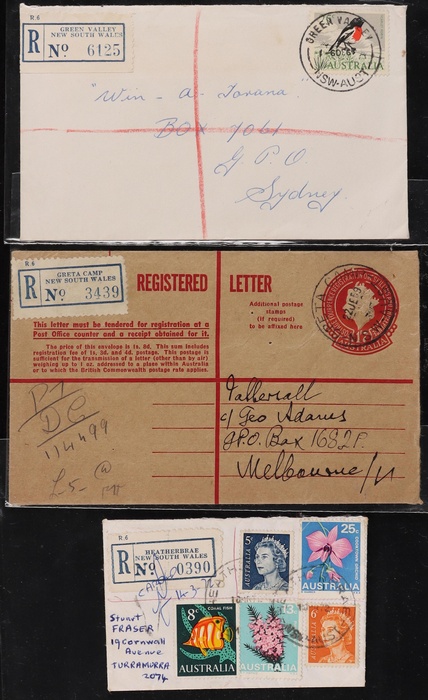 R.6
GREEN VALLEY
NEW SOUTH WALES
R No 6125
GREEN VALLEY
NSW-AUST
AUSTRALIA
"Win - a - Torana"
BOX 7061
G.P.O
Sydney.
R.6
GRETA CAMP
NEW SOUTH WALES
R No 3439
REGISTERED LETTER
This letter must be tendered for registration at a
Post Office counter and a receipt obtained for it.
The price of this envelope is 1s. 8d. This sum includes
registration fee of 1s. 3d. and 4d. postage. This postage is
sufficient for the transmission of a letter (other than by air)
weighing up to 1 oz. addressed to a place within Australia
or to which the British Commonwealth postage rate applies.
Additional postage
stamps
(if required)
to be affixed here
AUSTRALIA
DC
114499
£5-
Tattersall
c/ Geo Adams
G.P.O. Box 1682P.
Melbourne/
R 6
HEATHERBRAE
NEW SOUTH WALES
R No 0390
5c
AUSTRALIA
25c
COOKTOWN ORCHID
AUSTRALIA
8c CORAL FISH
AUSTRALIA
13c
AUSTRALIA
6c
AUSTRALIA
Stuart
FRASER
19 Cornwall
Avenue
TURRAMURRA
2074